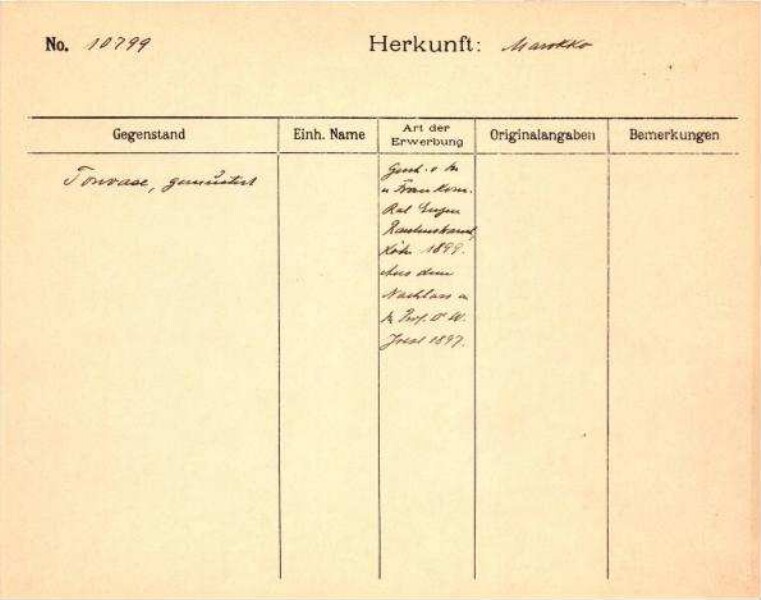 No. 10799 Herkunft: Marokko
Gegenstand Einh. Name Art der Erwerbung Originalangaben Bemerkungen
Tonvase, gemustert
Gesch. v. H.
u Frau Kom.
Rat Eugen
Rautenstrauch,
Köln 1899.
Aus dem
Nachlass
Prof. Dr W.
Joest 1897.